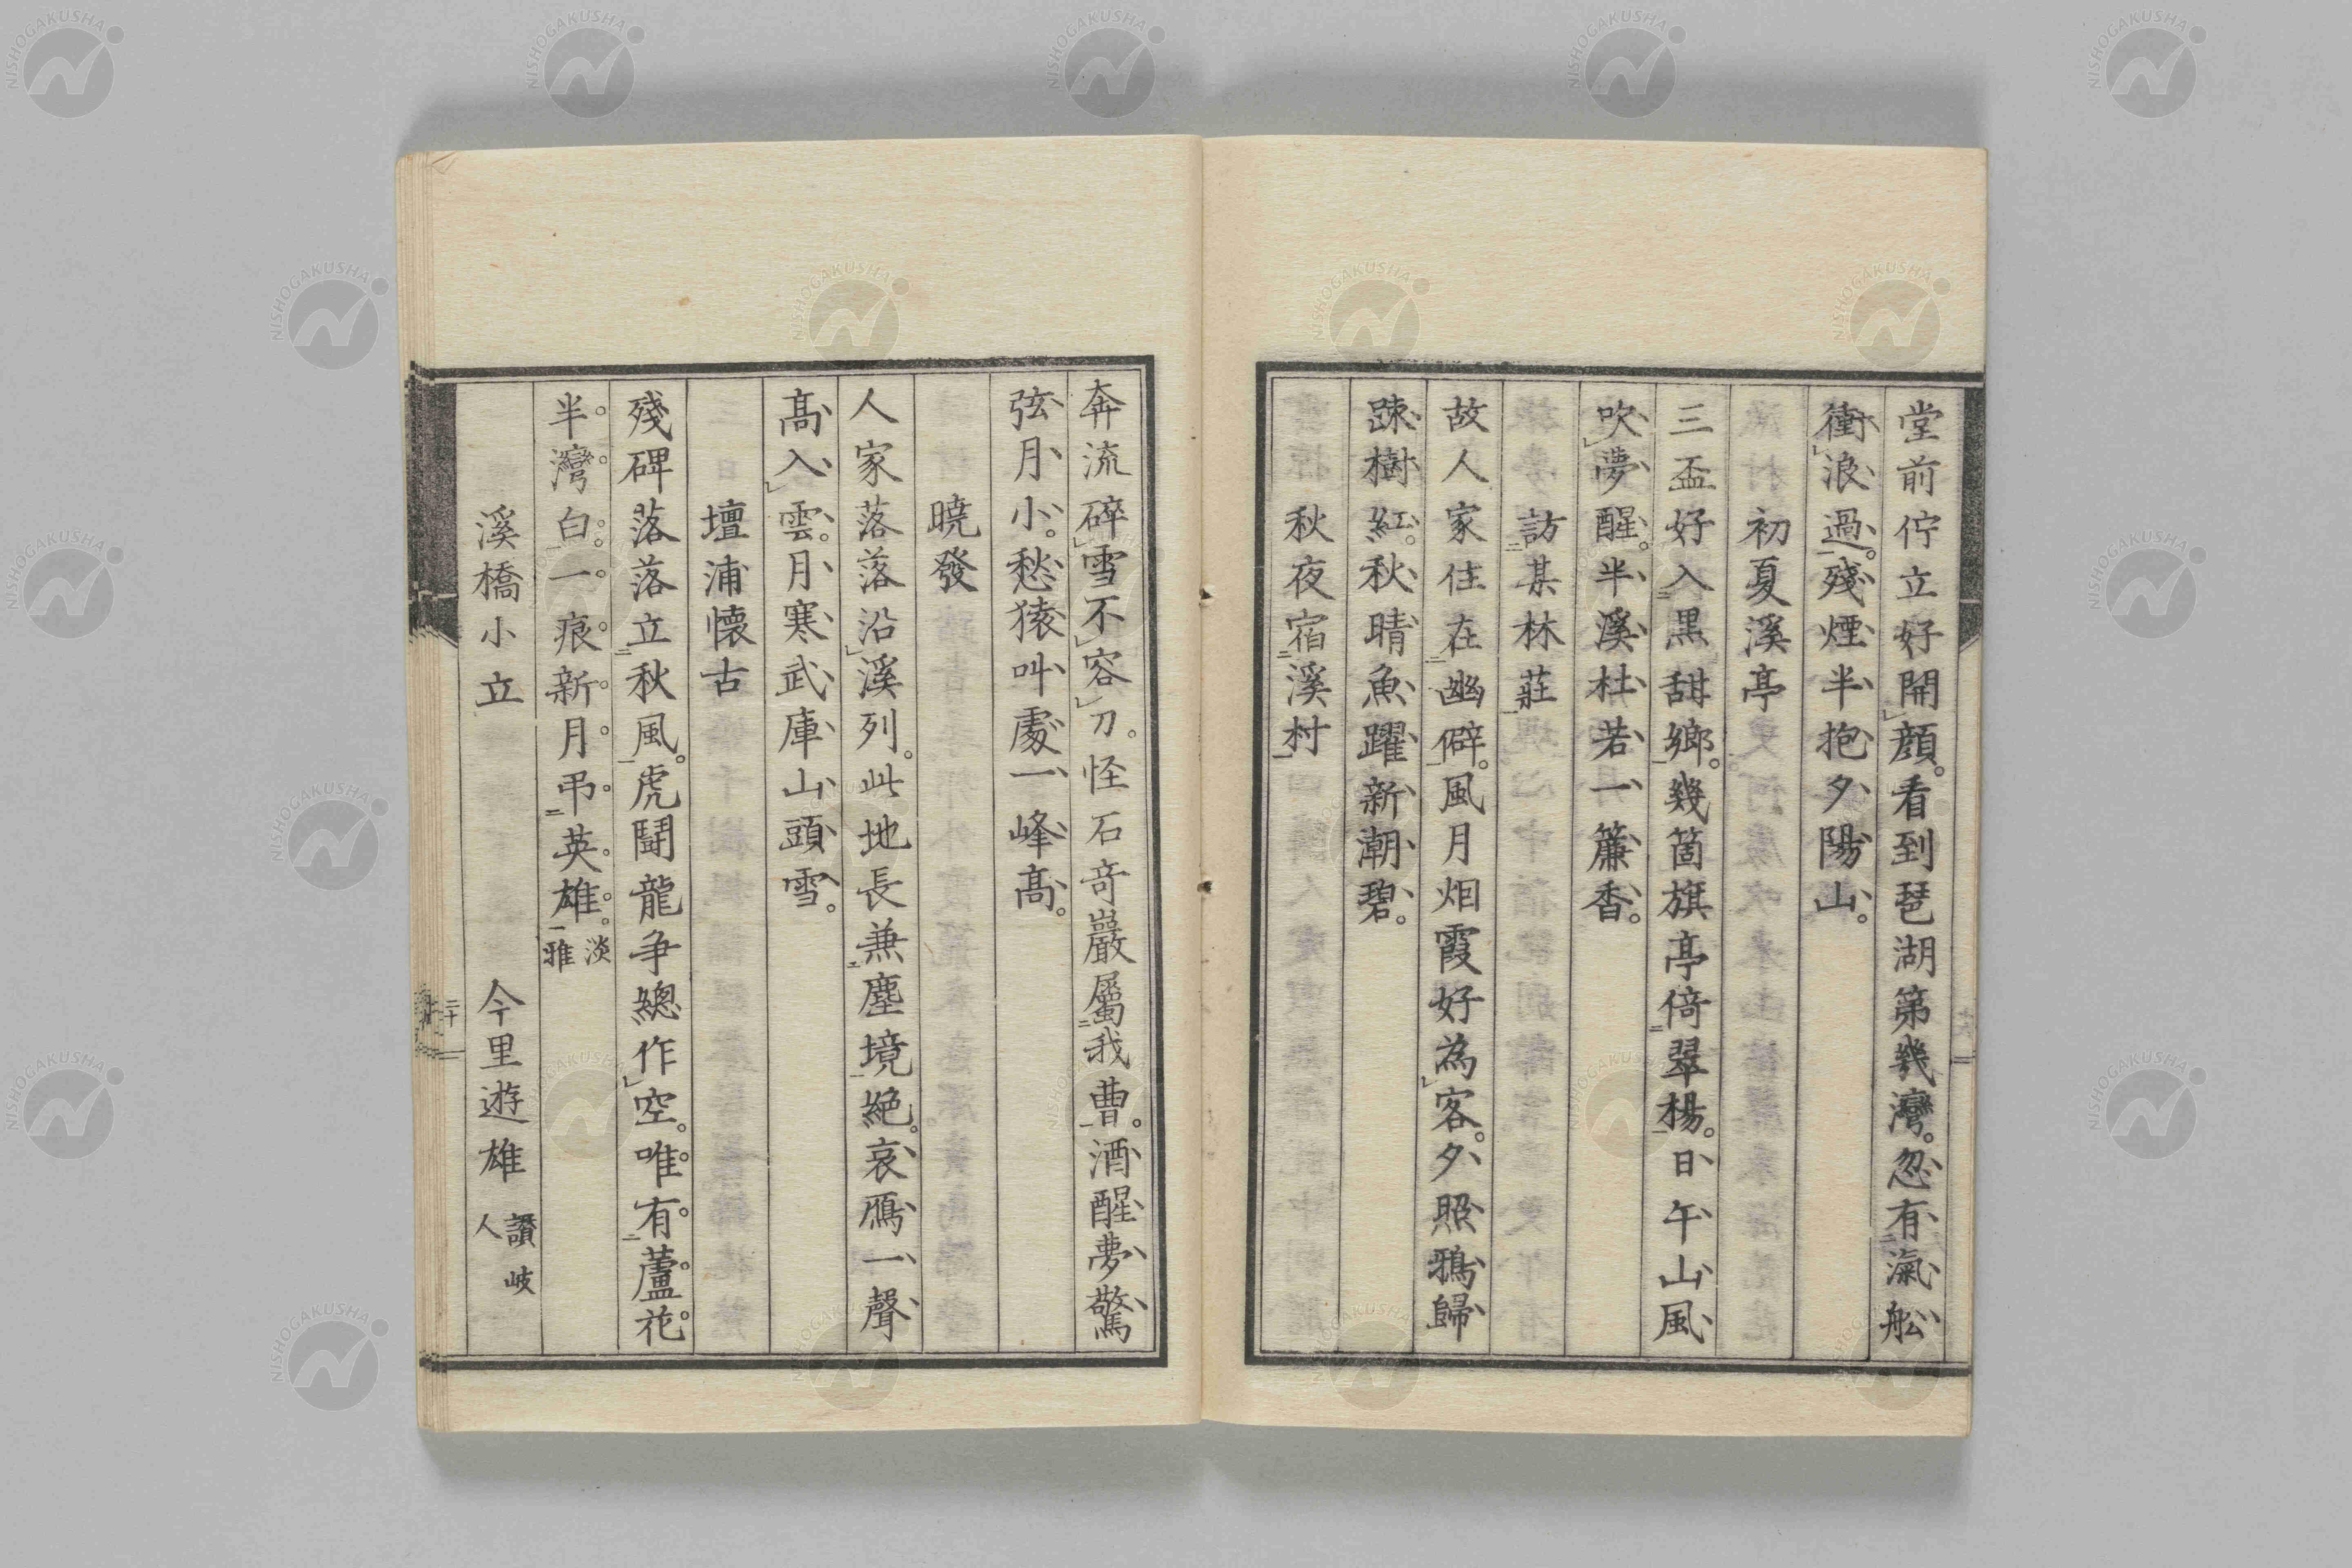 堂前佇立好開顔。看到琶湖第幾灣。忽有瀛舩
衝浪過。殘煙半抱夕陽山。
初夏溪亭
三盃好入黒甜鄉。幾箇旗亭倚翠楊。日午山風
吹夢醒。半溪杜若一簾香。
訪某林莊
故人家住在幽僻。風月烟霞好為客。夕照鴉歸
疎樹紅。秋晴魚躍新潮碧。
秋夜宿溪村
奔流碎雪不容刀。怪石奇巖屬我曹。酒醒夢驚
弦月小。愁猿叫處一峰高。
曉發
人家落落沿溪列。此地長兼塵境絶。哀鴈一聲
高入雲。月寒武庫山頭雪。
壇浦懷古
殘碑落落立秋風。虎鬪龍爭總作空。唯有蘆花
半灣白。一痕新月弔英雄。淡雅
溪橋小立 今里遊雄 讃岐人
NISHOGAKUSHA